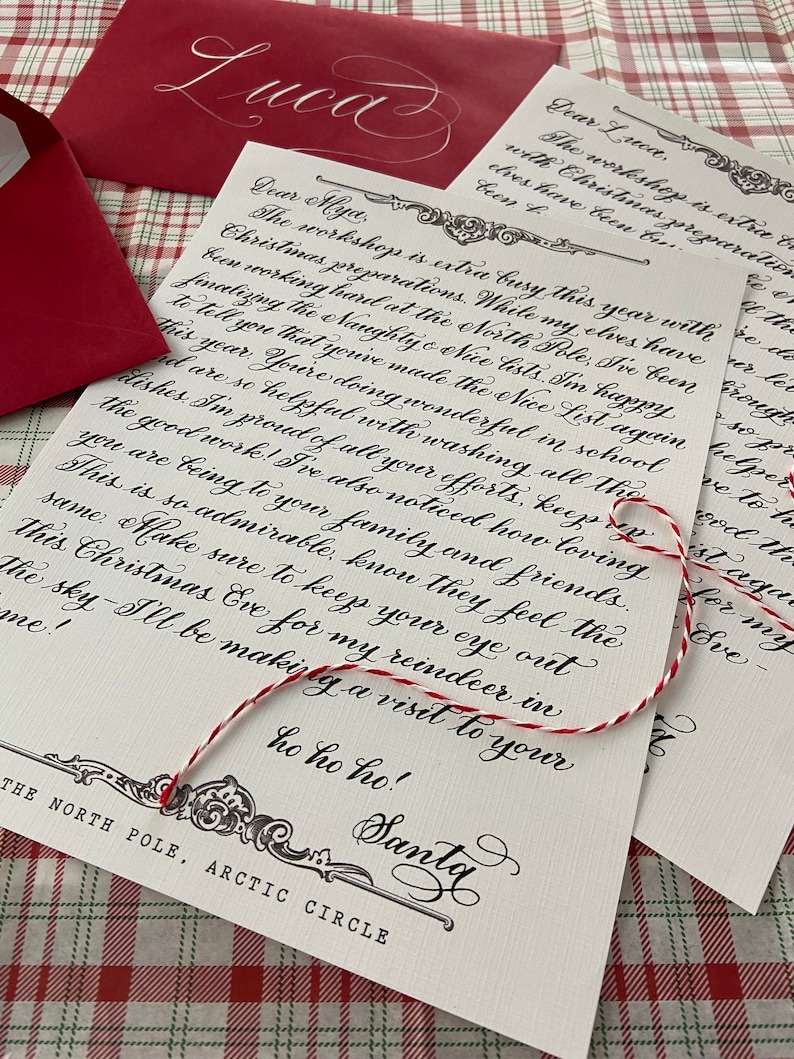 Luca
Dear Alya,
The workshop is extra busy this year with
Christmas preparations. While my elves have
been working hard at the North Pole, I've been
finalizing the Naughty & Nice lists. I'm happy
to tell you that you've made the Nice List again
this year. You're doing wonderful in school
and are so helpful with washing all the
dishes. I'm proud of all your efforts, keep up
the good work! I've also noticed how loving
you are being to your family and friends.
This is so admirable, know they feel the
same. Make sure to keep your eye out
this Christmas Eve for my reindeer in
the sky - I'll be making a visit to your
me!
ho ho ho!
Santa
THE NORTH POLE, ARCTIC CIRCLE
Dear Luca,
The workshop is extra
with Christmas preparation
elves have been
been
so
helper
to
again
for my
Eve -